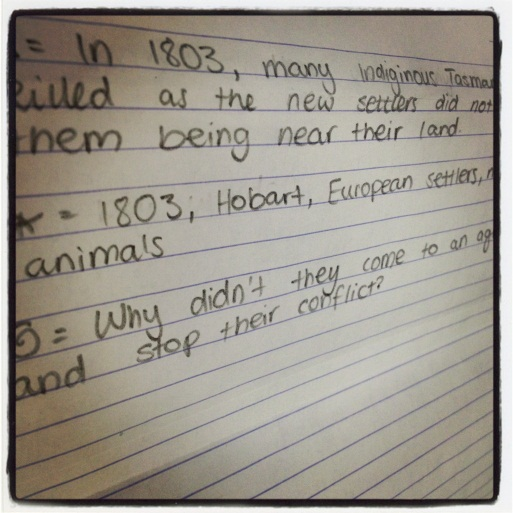 = In 1803, many Indiginous Tasma
killed as the new settlers did not
them being near their land.
* = 1803, Hobart, European settlers,
animals
Q = Why didn't they come to an ag
and stop their conflict?